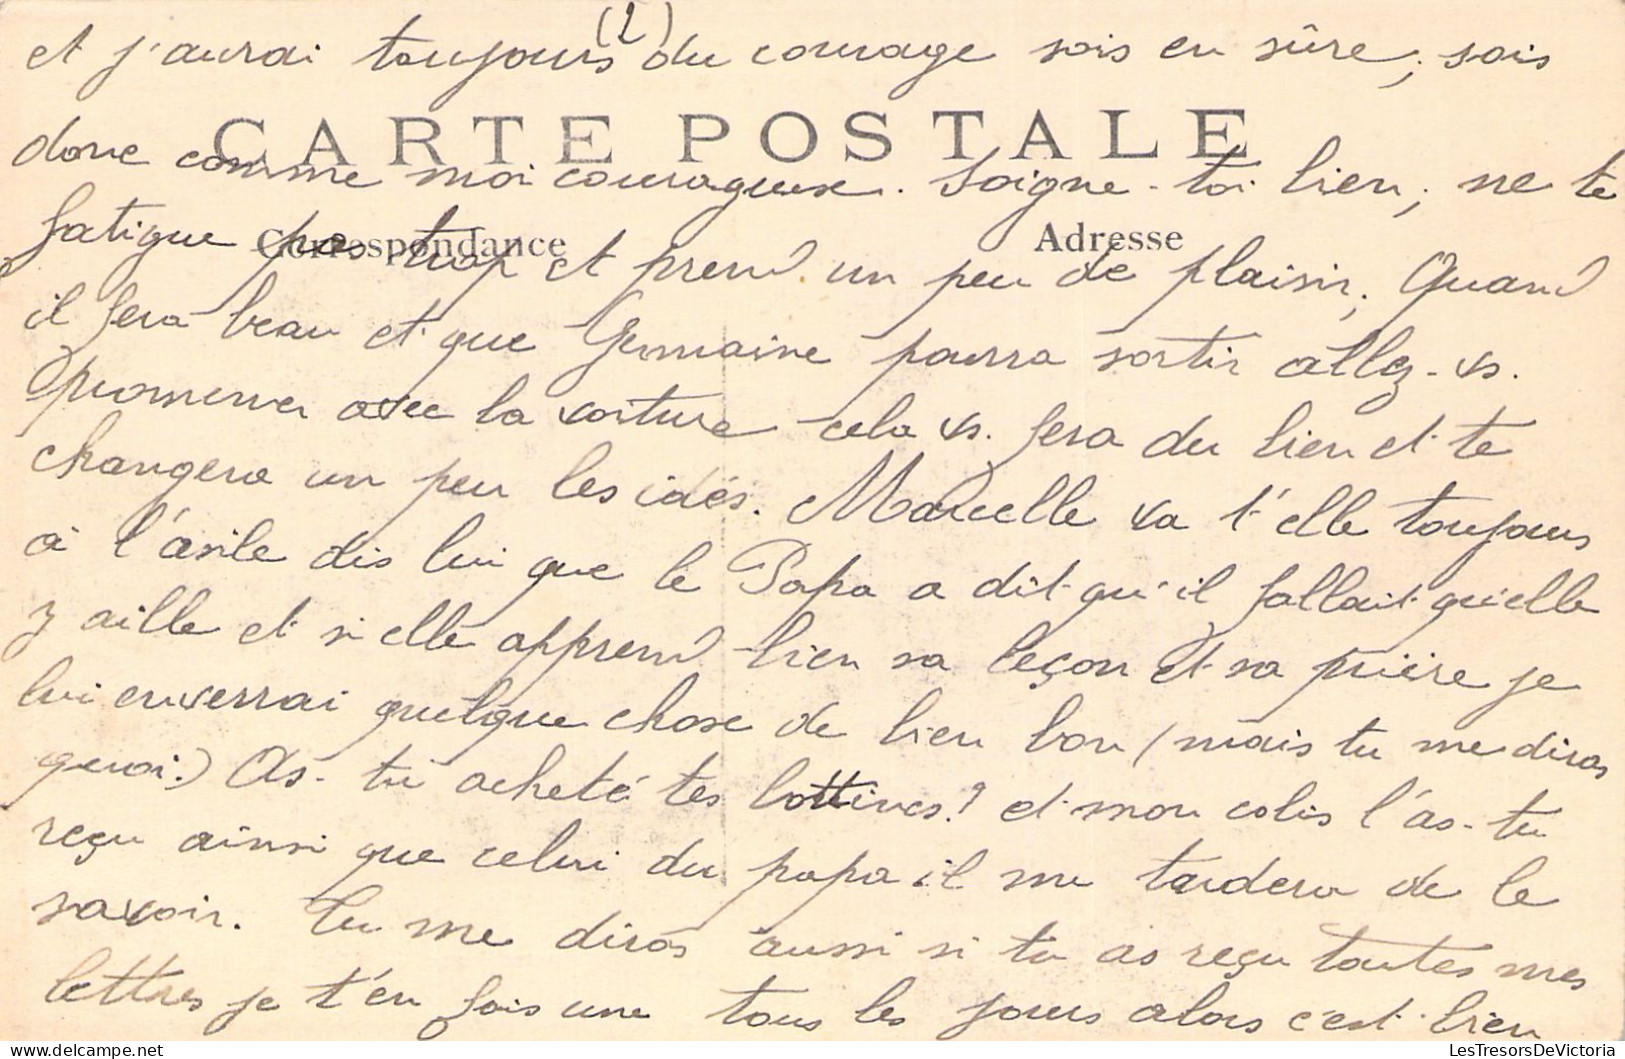 (2)
et j'aurai toujours du courage sois en sûre, sois
CARTE POSTALE
donc comme moi courageuse. Soigne-toi bien, ne te
Correspondance
Adresse
fatigue pas trop et prend un peu de plaisir. Quand
il fera beau et que Germaine pourra sortir allez-vs.
promener avec la voiture cela vs. fera du bien et te
changera un peu les idés. Marcelle va t'elle toujours
à l'asile dis lui que le Papa a dit qu'il fallait qu'elle
y aille et si elle apprend bien sa leçon et sa prière je
lui enverrai quelque chose de bien bon (mais tu me diras
quoi.) As-tu acheté tes bottines? et mon colis l'as-tu
reçu ainsi que celui du papa il me tardera de le
savoir. Tu me diras aussi si tu as reçu toutes mes
lettres je t'en fais une tous les jours alors c'est bien
LesTresorsDeVictoria